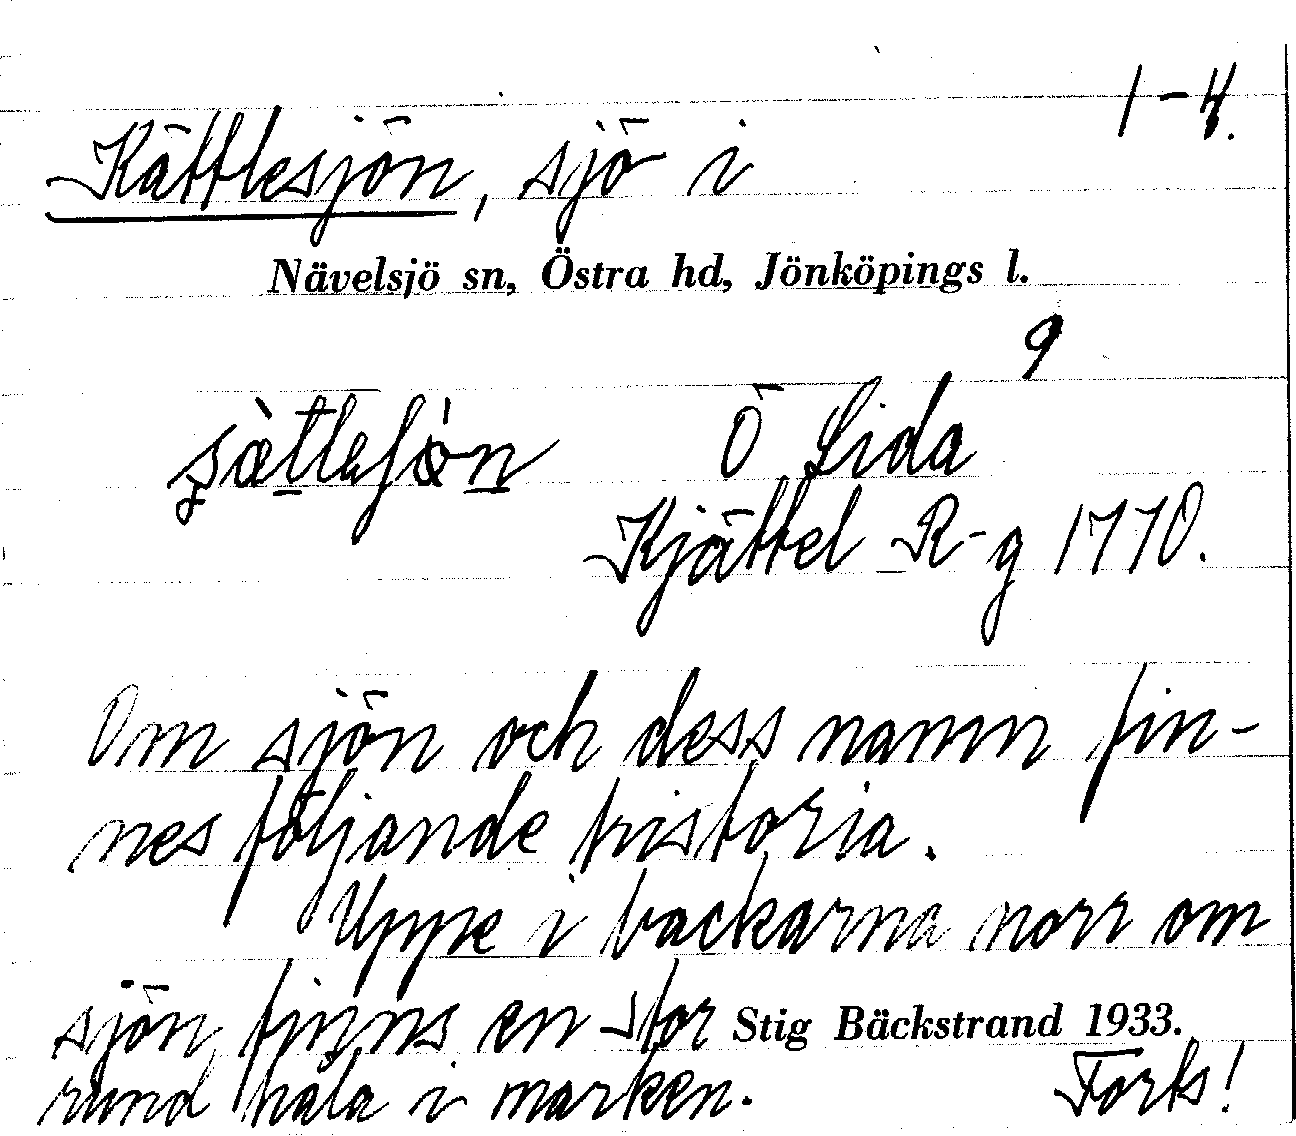 1-4.
Kättlesjön, sjö i
Nävelsjö sn, Östra hd, Jönköpings l.
9
Ö Lida
Kjättel R-g 1770.
Om sjön och dess namn fin-
nes följande historia.
Uppe i backarna norr om
sjön finns en stor
Stig Bäckstrand 1933.
rund håla i marken.
Forts!